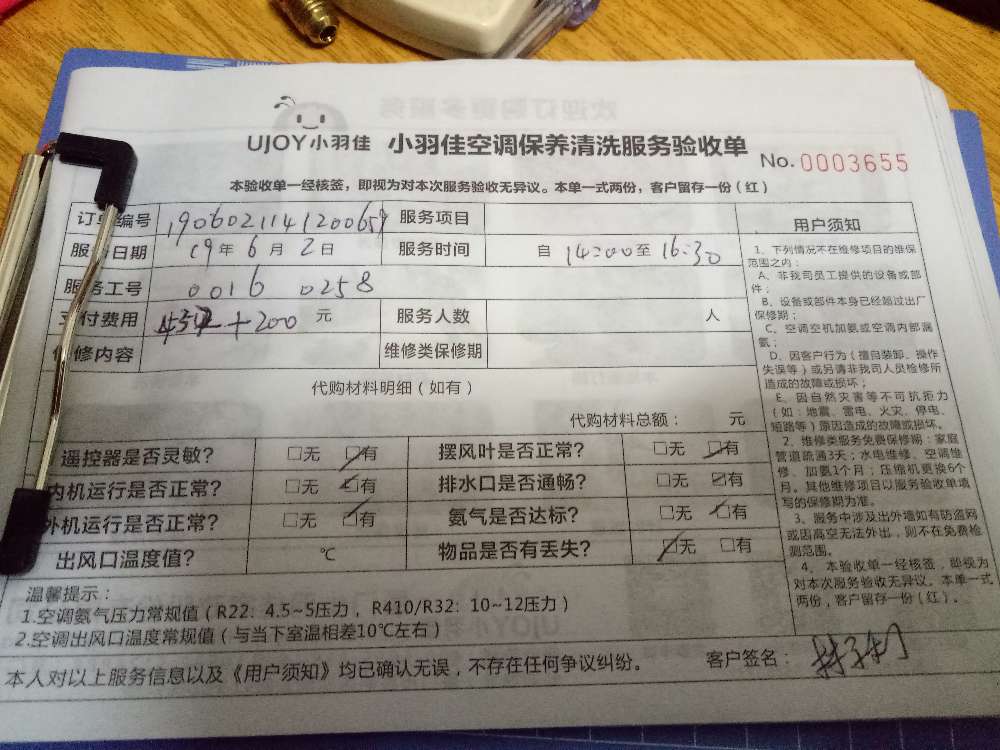 UJOY小羽佳 小羽佳空调保养清洗服务验收单 No.0003655
本验收单一经核签，即视为对本次服务验收无异议。本单一式两份，客户留存一份（红）
订单编号 190602114120065 服务项目
服务日期 19年6月2日 服务时间 自 14:00至 16:30
服务工号 0016 0258
支付费用 +200 元 服务人数 人
修内容 维修类保修期
代购材料明细（如有）
代购材料总额： 元
遥控器是否灵敏？ □无 ☑有 摆风叶是否正常？ □无 ☑有
内机运行是否正常？ □无 ☑有 排水口是否通畅？ □无 ☑有
外机运行是否正常？ □无 ☑有 氨气是否达标？ □无 ☑有
出风口温度值？ ℃ 物品是否有丢失？ ☑无 □有
温馨提示：
1.空调氨气压力常规值（R22：4.5~5压力，R410/R32：10~12压力）
2.空调出风口温度常规值（与当下室温相差10℃左右）
本人对以上服务信息以及《用户须知》均已确认无误，不存在任何争议纠纷。 客户签名：
用户须知
1、下列情况不在维修项目的维保
范围之内：
A、非我司员工提供的设备或部
件；
B、设备或部件本身已经超过出厂
保修期；
C、空调空机加氨或空调内部漏
氨；
D、因客户行为（擅自装卸、操作
失误等）或另请非我司人员检修所
造成的故障或损坏；
E、因自然灾害等不可抗拒力
（如：地震、雷电、火灾、停电、
短路等）原因造成的故障或损坏。
2、维修类服务免费保修期：家庭
管道疏通3天；水电维修、空调维
修、加氨1个月；压缩机更换6个
月。其他维修项目以服务验收单填
写的保修期为准。
3、服务中涉及出外墙如有防盗网
或因高空无法外出，则不在免费检
测范围。
4、本验收单一经核签，即视为
对本次服务验收无异议。本单一式
两份，客户留存一份（红）。